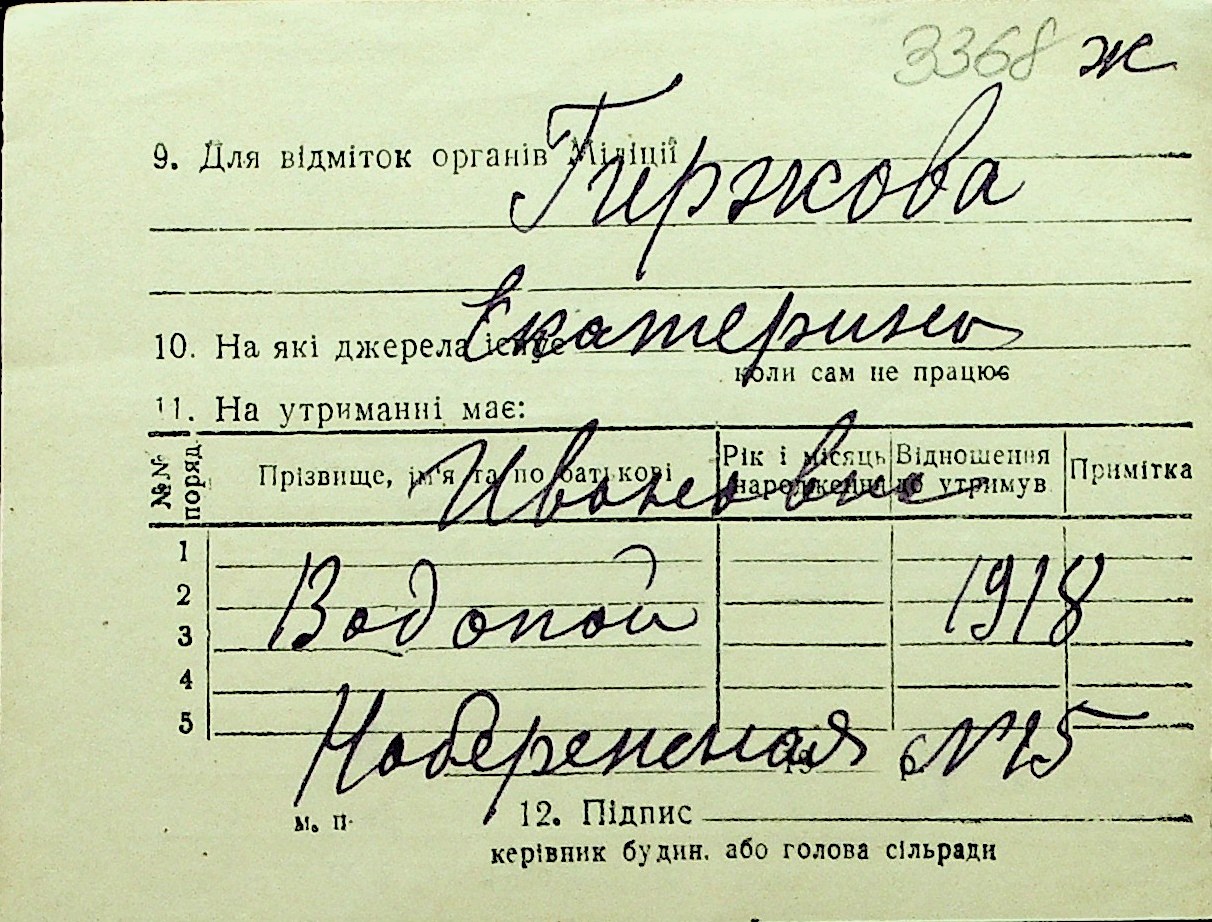 3368 ж
9. Для відміток органів Міліції
Гиржова
Екатерина
10. На які джерела існує
коли сам не працює
11. На утриманні має:
№№ поряд. Прізвище, ім'я та по батькові Рік і місяць народження Відношення до утримув. Примітка
Ивановна
1
2
3
4
5
Водопой 1918
Набережная №15
19 р.
м. п. 12. Підпис
керівник будин. або голова сільради